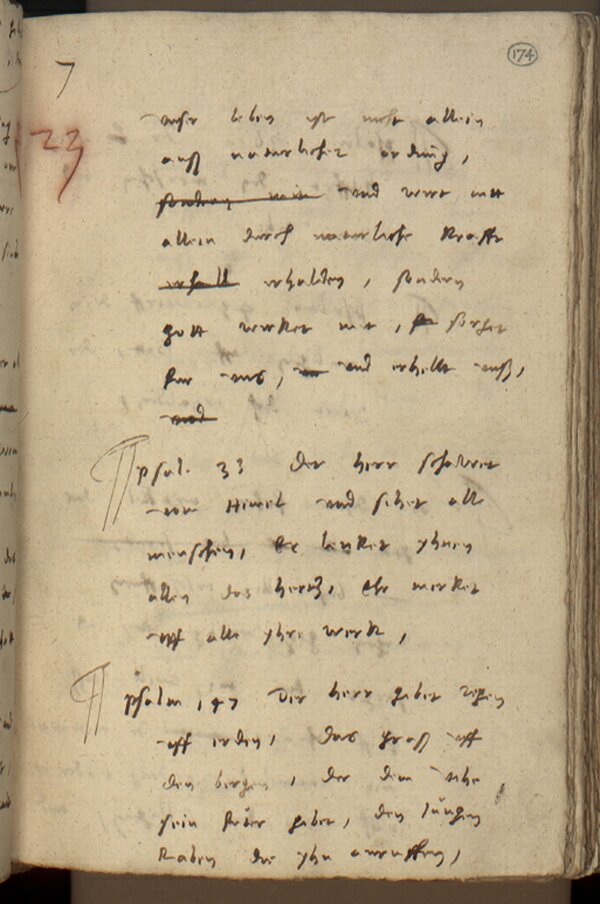 7
174
23
unser leben ist nicht allein
auß naturlicher ordnug,
sondern und wirt nitt
allein durch naturliche krafft
erhalt erhalden, sondern
gott wirket mit, sorget
fur uns, und erhellt unß,
und
psal. 33 der herr schawet
vom Himel und sihet alle
menschen, Er lenket yhnen
allen das hertz, Ehr merket
uff alle yhre werk,
psalm 147 Der herr gibet regen
uff erden, das graß uff
den bergen, der dem vihe
sein futer gibet, den jungen
Raben die yhn anruffen,